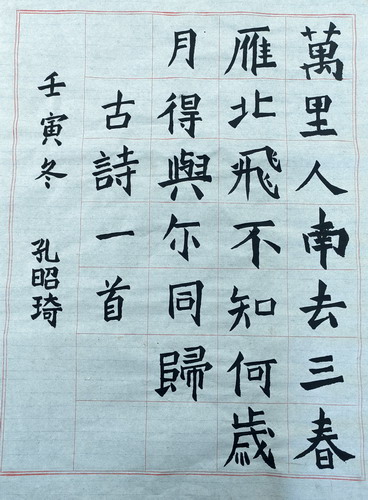 萬里人南去三春
雁北飛不知何歲
月得與尔同歸
古詩一首
壬寅冬 孔昭琦